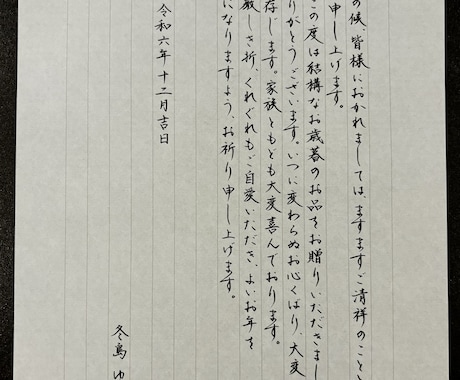 の候、皆様におかれましては、ますますご清祥のことと
申し上げます。
この度は結構なお歳暮のお品をお贈りいただきまし
りがとうございます。いつに変わらぬお心くばり、大変
存じます。家族ともども大変喜んでおります。
厳しき折、くれぐれもご自愛いただき、よいお年を
になりますよう、お祈り申し上げます。
令和六年十二月吉日
冬島 ゆ